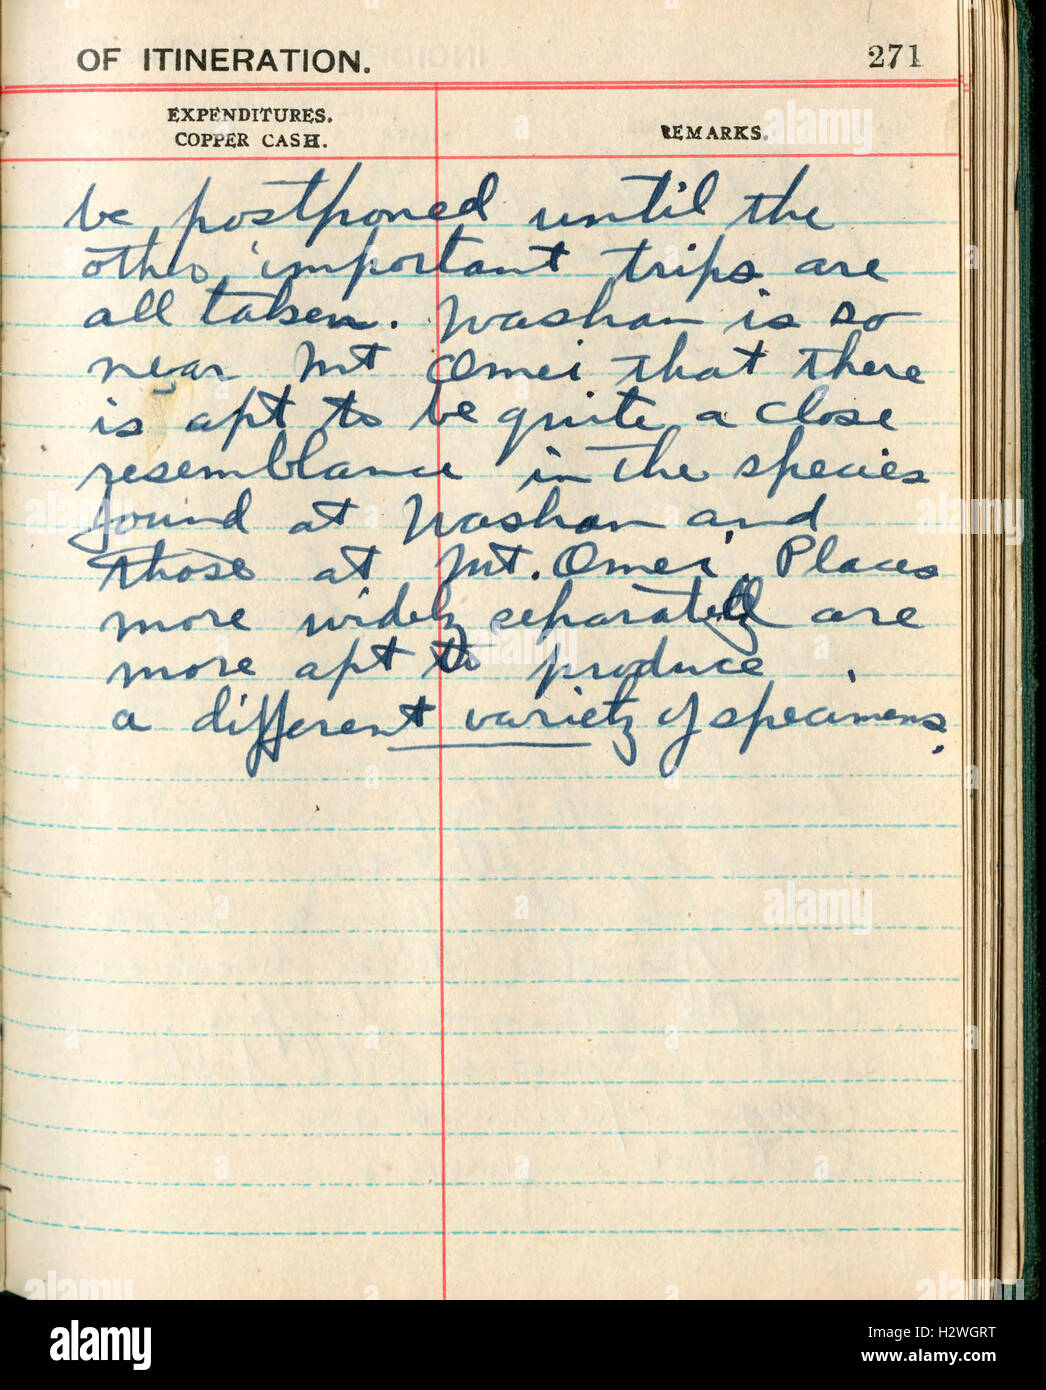 OF ITINERATION.
271
EXPENDITURES.
COPPER CASH.
REMARKS.
be postponed until the
other important trips are
all taken. Washan is so
near Mt Omei that there
is apt to be quite a close
resemblance in the species
found at Washan and
those at Mt. Omei. Places
more widely separated are
more apt to produce
a different variety of specimens.
alamy
Image ID: H2WGRT
www.alamy.com